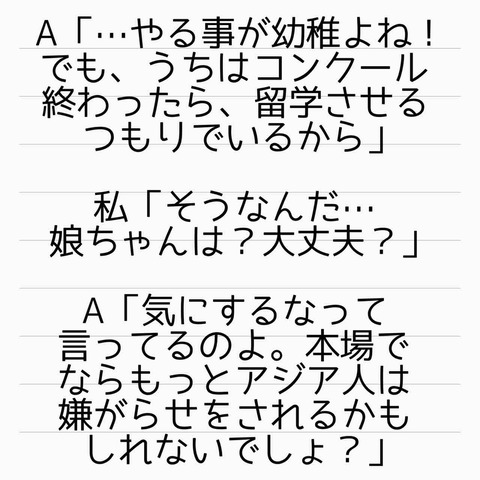 A「…やる事が幼稚よね！
でも、うちはコンクール
終わったら、留学させる
つもりでいるから」
私「そうなんだ…
娘ちゃんは？大丈夫？」
A「気にするなって
言ってるのよ。本場で
ならもっとアジア人は
嫌がらせをされるかも
しれないでしょ？」